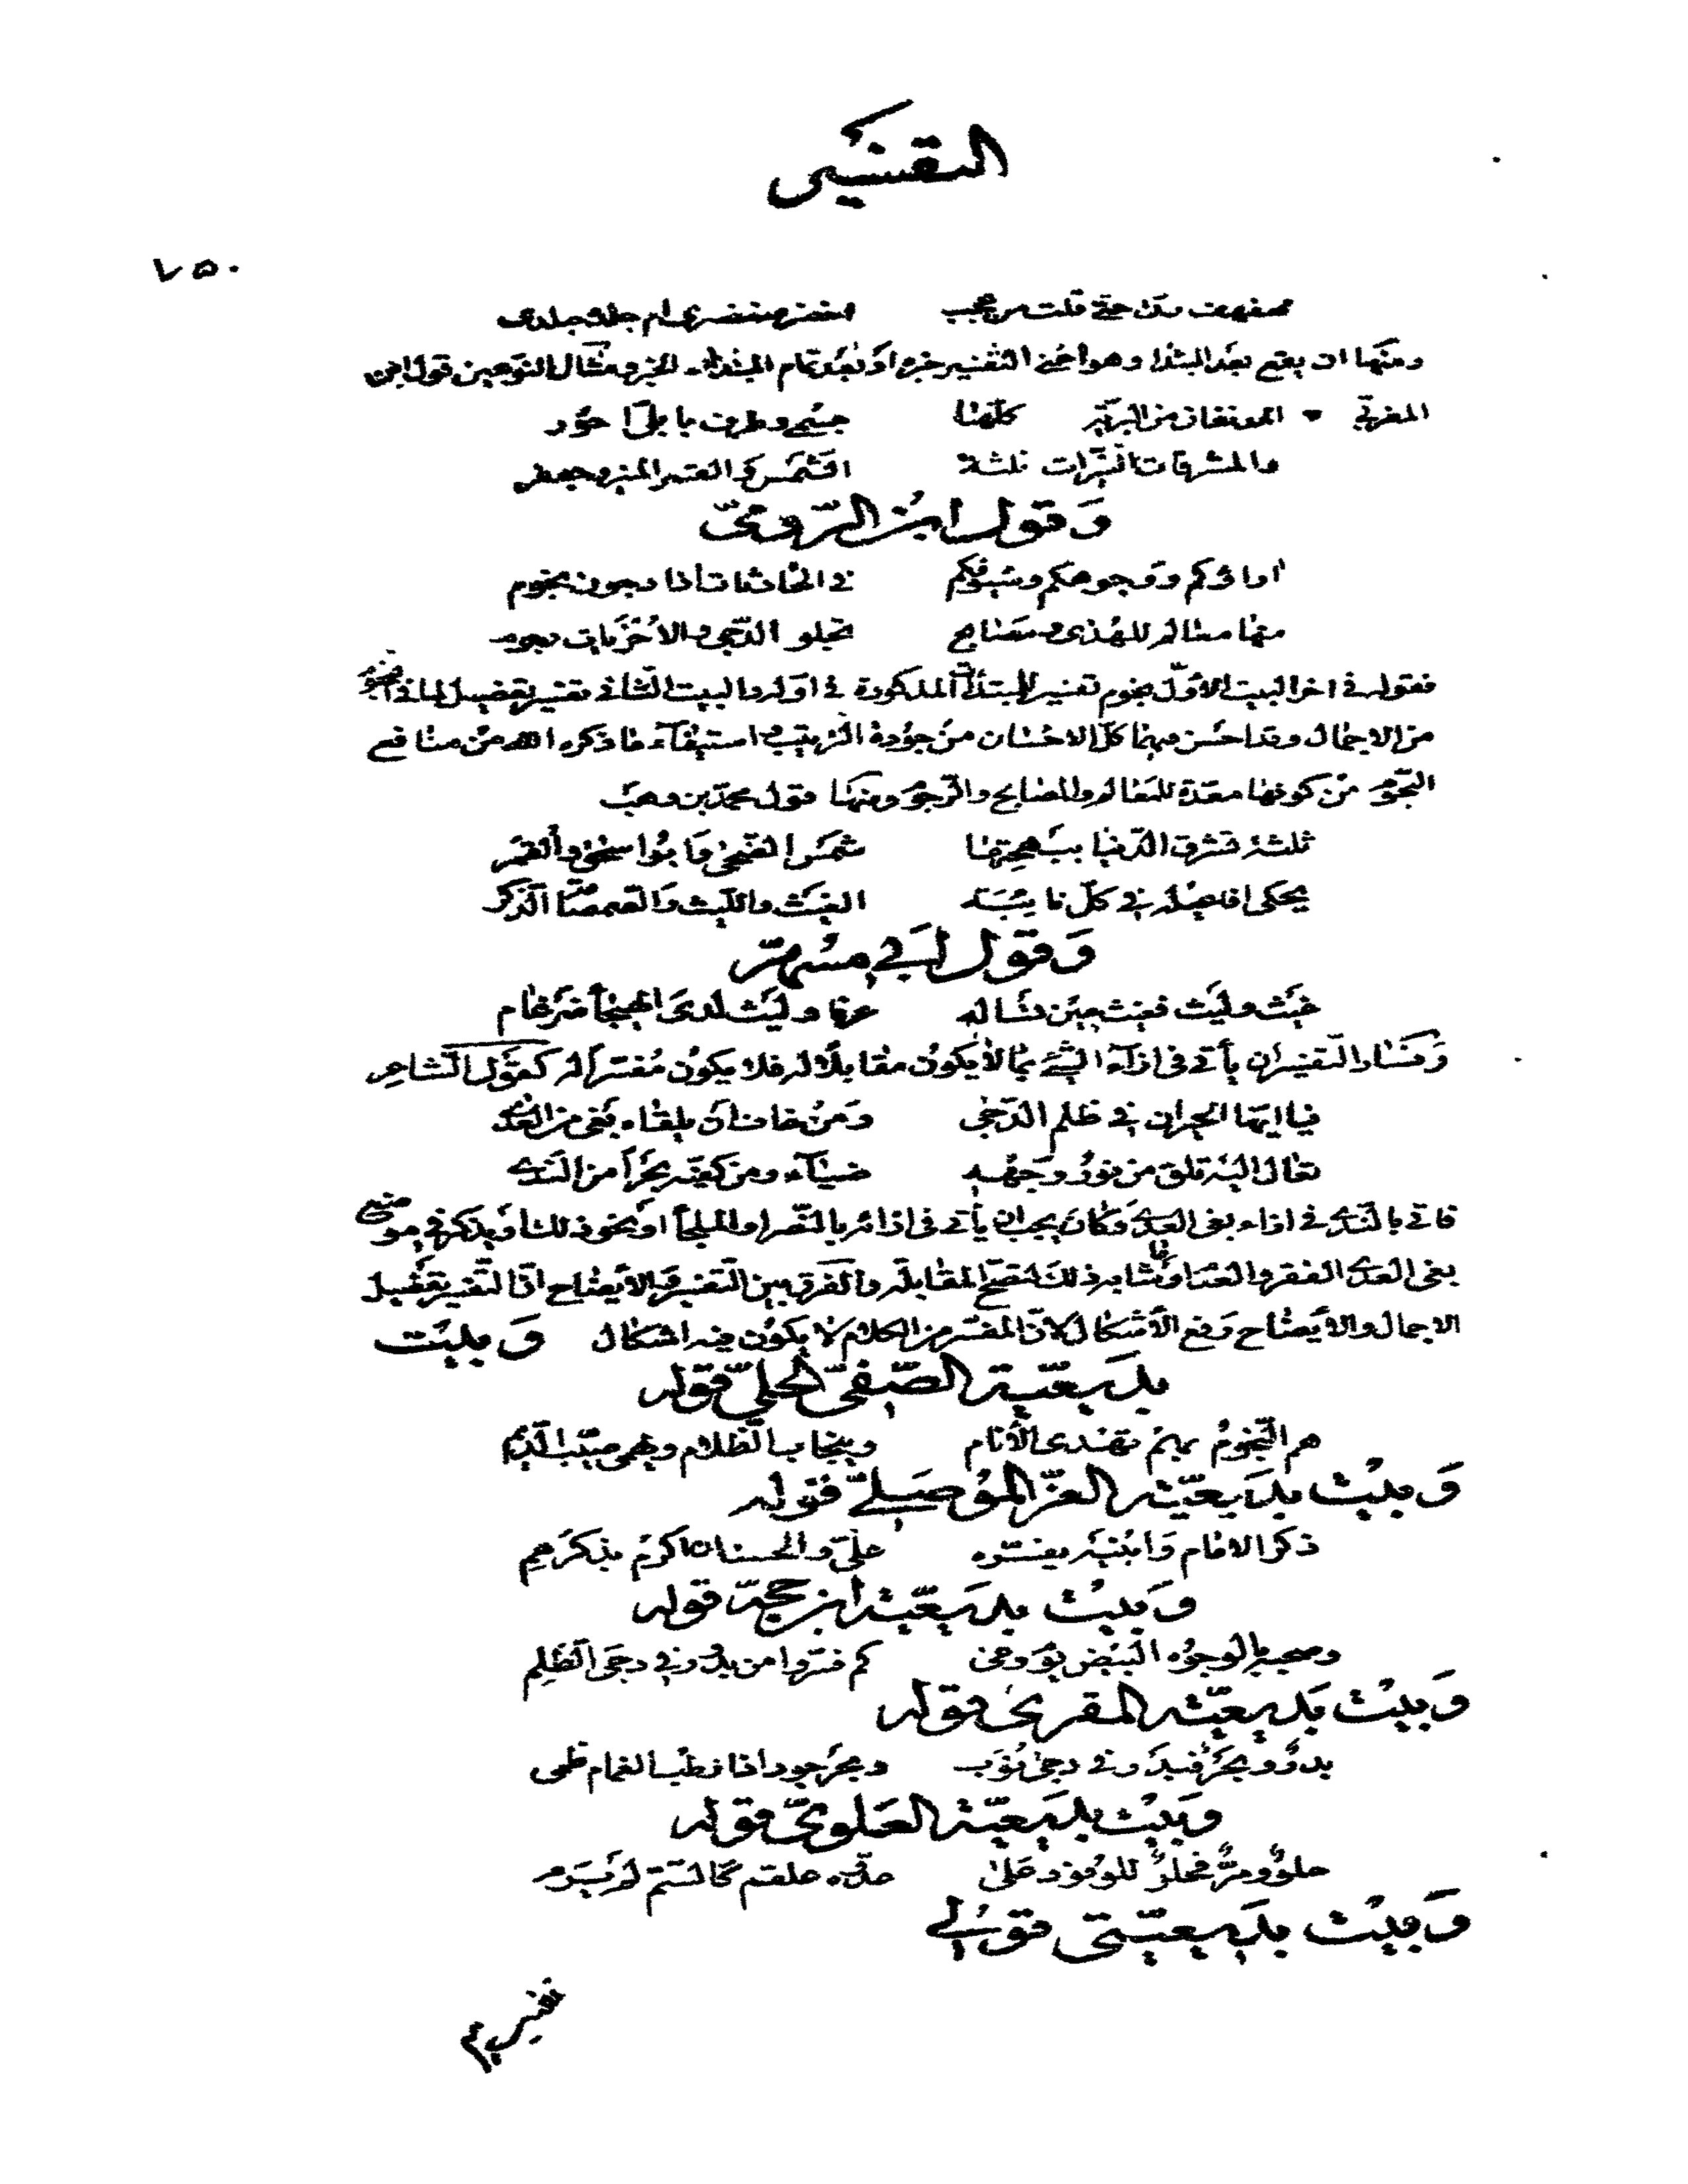 التفسير
٧٥٠
حتى قلت من عجب
ومنها ان يقع بعد المبتدا وهو اعني التفسير خبره او بعد تمام المبتداء الخبر ومثال النوعين قول ابن
المغربي من البرية كلها جسمي وطرف بابلي احور
والمشرقات النيرات ثلثة الشمس والقمر المنير وجعفر
وقول ابن الرومي
اراؤكم ووجوهكم وسيوفكم في الحادثات اذا دجون نجوم
منها معالم للهدى ومصابح تجلو الدجى والاخريات رجوم
فقوله في اخر البيت الاول نجوم تفسير للمبتدأت المذكورة في اوله والبيت الثاني تفسير تفصيل لما في النجوم
من الاجمال وقد احسن فيهما كل الاحسان من جودة الترتيب واستيفاء ما ذكره الله من منافع
النجوم من كونها معدة للمعالم والمصابح والرجوم ومنها قول محمد بن وهيب
ثلثة تشرق الدنيا ببهجتها شمس الضحى وابوا سحق والقمر
يحكى افاعيله في كل نايبة الغيث والليث والصمصامة الذكر
وقول ابي مسهر
غيث وليث فغيث حين تساله عرفا وليث لدى الهيجآ ضرغام
وفساد التفسير ان يأتي في ازآء الشيء بما لا يكون مقابلا له فلا يكون مفسرا له كقول الشاعر
فيا ايها الحيران في ظلم الدجى ومن خاف ان يلقاه بغي من العدى
تعال اليه تلق من نور وجهه ضيآء ومن كفيه بحرا من الندى
فاتي بالندى في ازاء بغي العدى وكان يجب ان يأتي في ازائه بالنصر او الملجأ او نحو ذلك او يذكر في موضع
بغي العدى الفقر والعدم او ما شابه ذلك لتصح المقابلة والفرق بين التفسير والايضاح ان التفسير تفصيل
الاجمال والايضاح رفع الاشكال لان المفسر من الكلام لا يكون فيه اشكال وبيت
بديعية الصفي الحلي قوله
هم النجوم بهم تهتدى الانام وينجاب الظلام ويهمي صيب الديم
وبيت بديعية العز الموصلي قوله
ذكر الامام وابنيه يفسره علي والحسنان اكرم بذكرهم
وبيت بديعية ابن حجة قوله
وصحبه بالوجوه البيض يوم وغى كم فسروا من بدور في دجى الظلم
وبيت بديعية المقري قوله
بدر وبحر فبدر في دجى نوب وبحر جود اذا قطب الغمام ظمى
وبيت بديعية العلوي قوله
حلو ومر فحلو للوفود على علقم كالسم لم يرم
وبيت بديعيتي قولي
تفسير